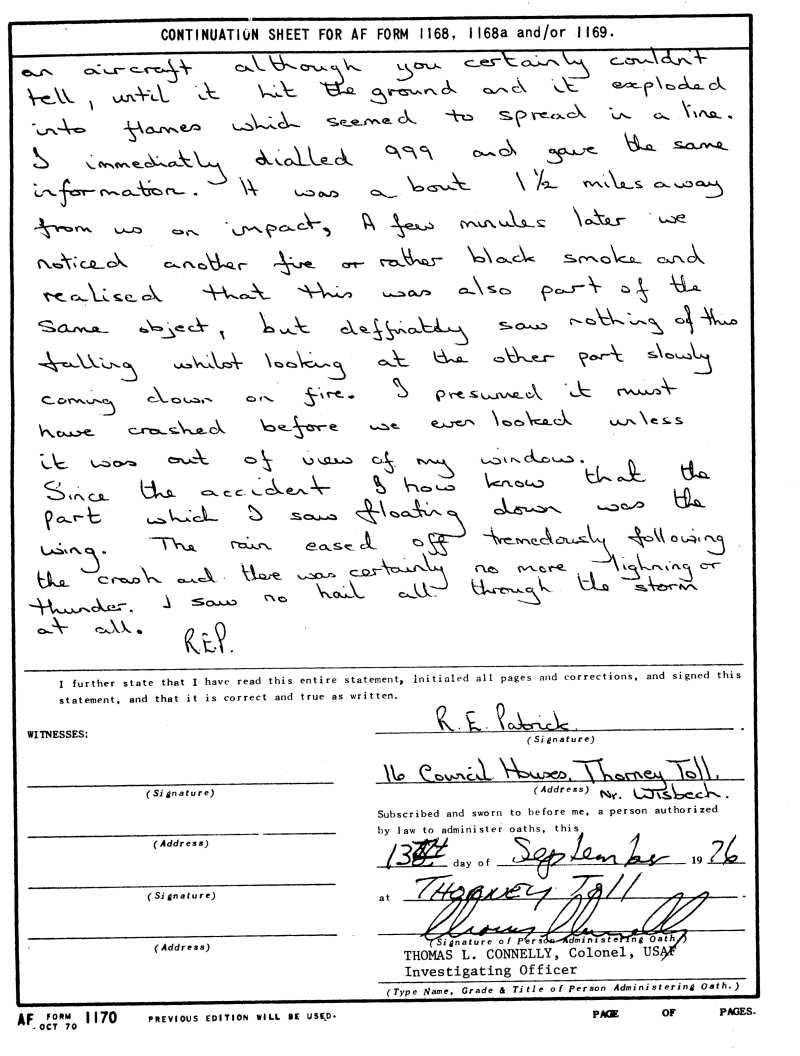 CONTINUATION SHEET FOR AF FORM 1168, 1168a and/or 1169.
an aircraft although you certainly couldn't
tell, until it hit the ground and it exploded
into flames which seemed to spread in a line.
I immediatly dialled 999 and gave the same
information. It was a bout 1½ miles away
from us on impact, A few minules later we
noticed another fire or rather black smoke and
realised that this was also part of the
same object, but deffniatdly saw nothing of this
falling whilst looking at the other part slowly
coming down on fire. I presumed it must
have crashed before we even looked unless
it was out of view of my window.
Since the accident I now know that the
part which I saw floating down was the
wing. The rain eased off tremedously following
the crash and there was certainly no more lighning or
thunder. I saw no hail all through the storm
at all. R.E.P.
I further state that I have read this entire statement, initialed all pages and corrections, and signed this
statement, and that it is correct and true as written.
WITNESSES:
R. E. Patrick.
(Signature)
16 Council Houses, Thorney Toll,
(Address) Nr. Wisbech.
(Signature)
Subscribed and sworn to before me, a person authorized
by law to administer oaths, this
(Address)
13th day of September 1976
(Signature)
at THORNEY Toll
(Address)
(Signature of Person Administering Oath)
THOMAS L. CONNELLY, Colonel, USAF
Investigating Officer
(Type Name, Grade & Title of Person Administering Oath.)
AF FORM OCT 70 1170 PREVIOUS EDITION WILL BE USED. PAGE OF PAGES.